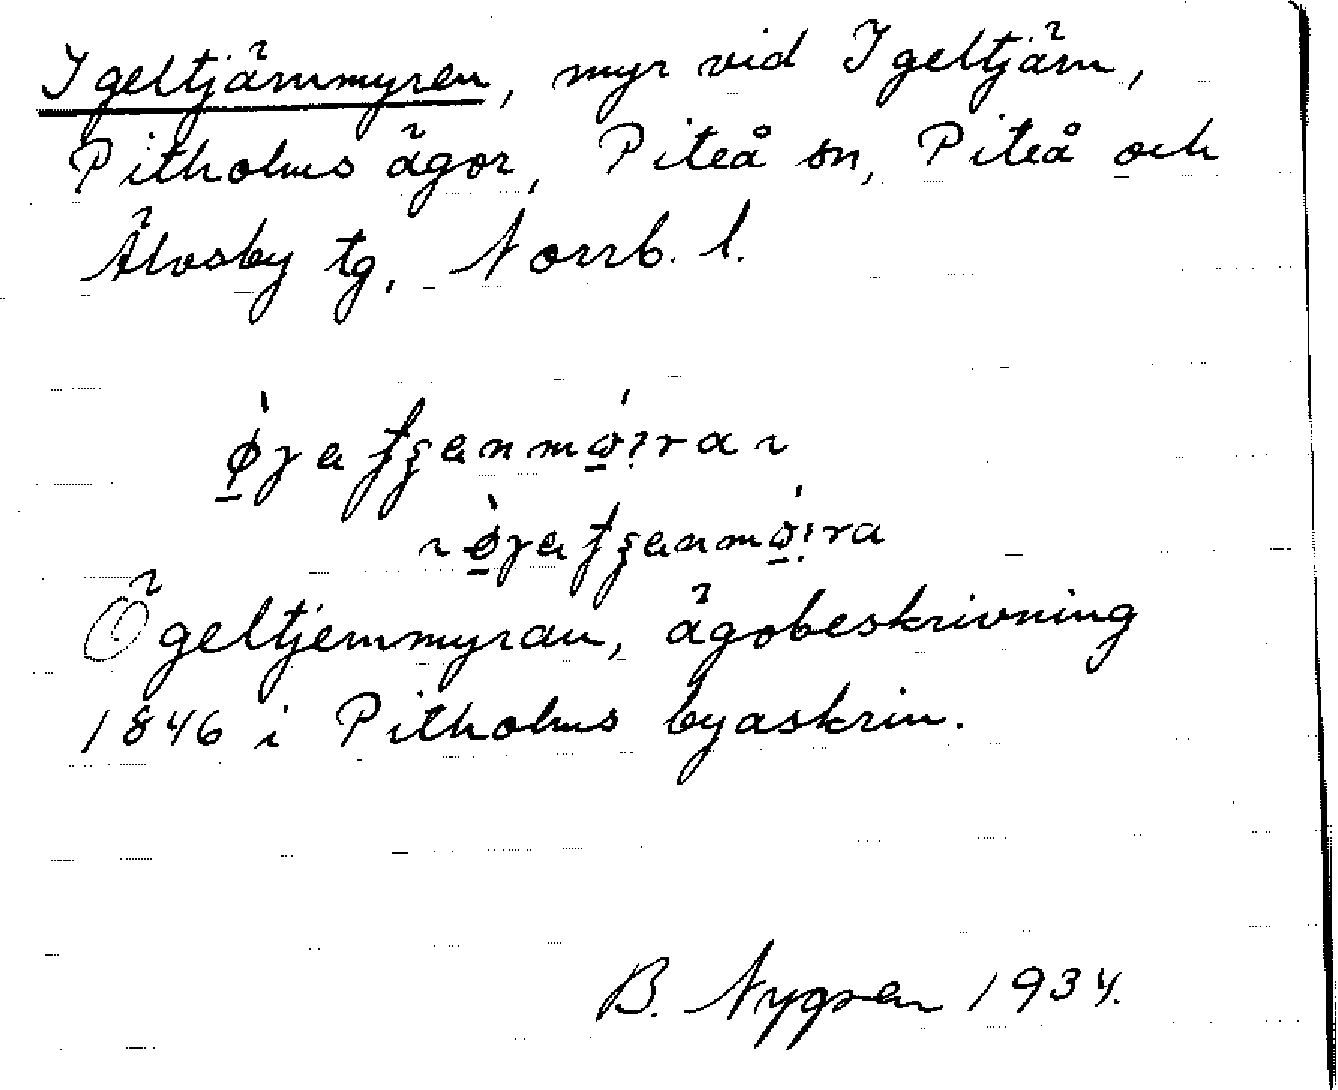 Igeltjärnmyren, myr vid Igeltjärn,
Pitholms ägor, Piteå sn, Piteå och
Älvsby tg, Norrb. l.
Ögeltjernmyran, ägobeskrivning
1846 i Pitholms byaskrin.
B. Nygren 1934.